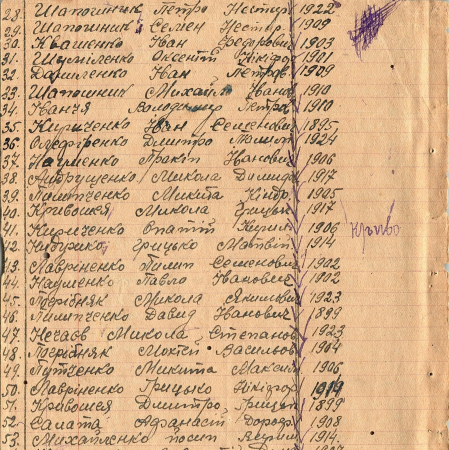 28. Шапошник Петро Нестир 1922
29. Шапошник Семен Нестир 1909
30. Квашенко Іван Федорович 1903
31. Шумиленко Оксентій Нікіфор 1901
32. Даниленко Іван Петров 1909
33. Шапошник Михайло Івано 1910
34. Іванчя Володимир Петро 1910
35. Кириченко Іван Семенович 1895
36. Дмитро 1924
37. Науменко Пракіп Іванович 1906
38. Андрущенко Микола Демид 1917
39. Пилипченко Микита Кіндр 1905
40. Кривошея Микола Грицьк 1917
41. Кириленко Ігнатій Кирил 1906
42. Грицько Матвій 1914
43. Лавріненко Пилип Семенович 1902
44. Науменко Павло Іванович 1902
45. Погрібняк Микола Якимович 1923
46. Пилипченко Давид Іванович 1899
47. Нечаєв Микола Степанов 1923
48. Погрібняк Мокій Васильов 1904
49. Луценко Микита Максим 1906
50. Лавріненко Грицько Нікіфор 1919
51. Кривошея Дмитро Грицьк 1899
52. Салата Афанасій Дороф 1908
53. Михайленко Йосип 1914